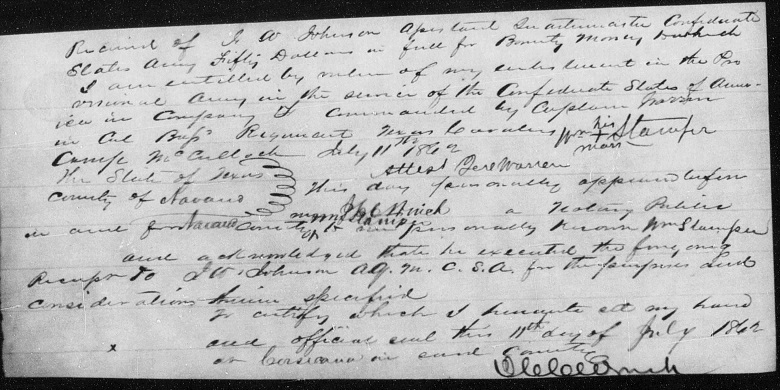 Received of J W Johnson Assistant Quartermaster Confederate
States Army Fifty Dollars in full for Bounty Money to which
I am entitled by virtue of my enlistment in the Pro
visional Army in the service of the Confederate States of Amer-
ica in Company commanded by Captain Warren
in Col Bass Regiment Texas Cavalry
Wm his X mark Stamper
Camp McCulloch July 11th 1862
Attest Jere Warren
The State of Texas
County of Navarro
This day personally appeared before
in and for Navarro County a Notary Public
Wm Stamper
to me personally known Wm Stamper
and acknowledged that he executed the foregoing
Receipt to J W Johnson A Q. M. C. S. A. for the purposes and
considerations therein specified
To certify which I hereunto set my hand
and official seal this 11th day of July 1862
at Corsicana in said County